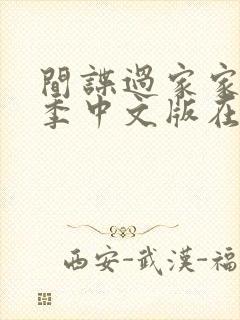 間諜過家家
季中文版在
西安-武漢-福